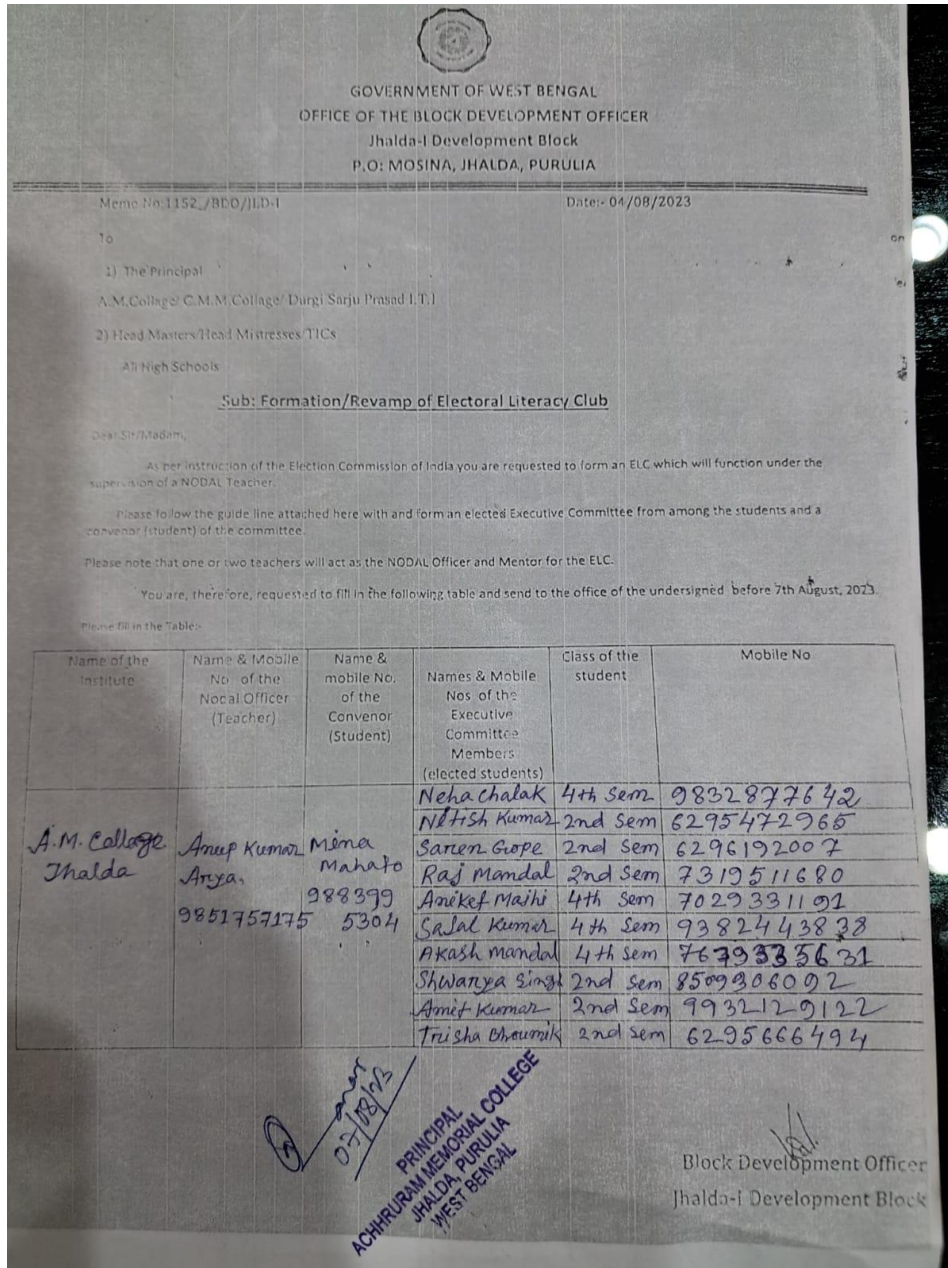 GOVERNMENT OF WEST BENGAL
OFFICE OF THE BLOCK DEVELOPMENT OFFICER
Jhalda-I Development Block
P.O: MOSINA, JHALDA, PURULIA
Memo No:1152_/BDO/JLD-I Date:- 04/08/2023
To
1) The Principal
A.M.Collage/ C.M.M.Collage/ Durgi Sarju Prasad I.T.I
2) Head Masters/Head Mistresses/TICs
All High Schools
Sub: Formation/Revamp of Electoral Literacy Club
Dear Sir/Madam,
As per instruction of the Election Commission of India you are requested to form an ELC which will function under the
supervision of a NODAL Teacher.
Please follow the guide line attached here with and form an elected Executive Committee from among the students and a
convenor (student) of the committee.
Please note that one or two teachers will act as the NODAL Officer and Mentor for the ELC.
You are, therefore, requested to fill in the following table and send to the office of the undersigned before 7th August, 2023.
Please fill in the Table:-
Name of the Institute
Name & Mobile No. of the Nodal Officer (Teacher)
Name & mobile No. of the Convenor (Student)
Names & Mobile Nos. of the Executive Committee Members (elected students)
Class of the student
Mobile No
A.M. College
Jhalda
Anup Kumar
Arya,
9851757175
Mina
Mahato
988399
5304
Neha Chalak 4th Sem 9832877642
Nitish Kumar 2nd Sem 6295472965
Saren Gope 2nd Sem 6296192007
Raj Mandal 2nd Sem 7319511680
Aniket Majhi 4th Sem 7029331191
Sajal Kumar 4th Sem 9382443838
Akash mandal 4th Sem
Shwarya Singh 2nd Sem 8509306092
Amit Kumar 2nd Sem 9932129122
Trisha Bhoumik 2nd Sem 6295666494
07/08/23
PRINCIPAL
ACHHRURAM MEMORIAL COLLEGE
JHALDA, PURULIA
WEST BENGAL
Block Development Officer
Jhalda-I Development Block